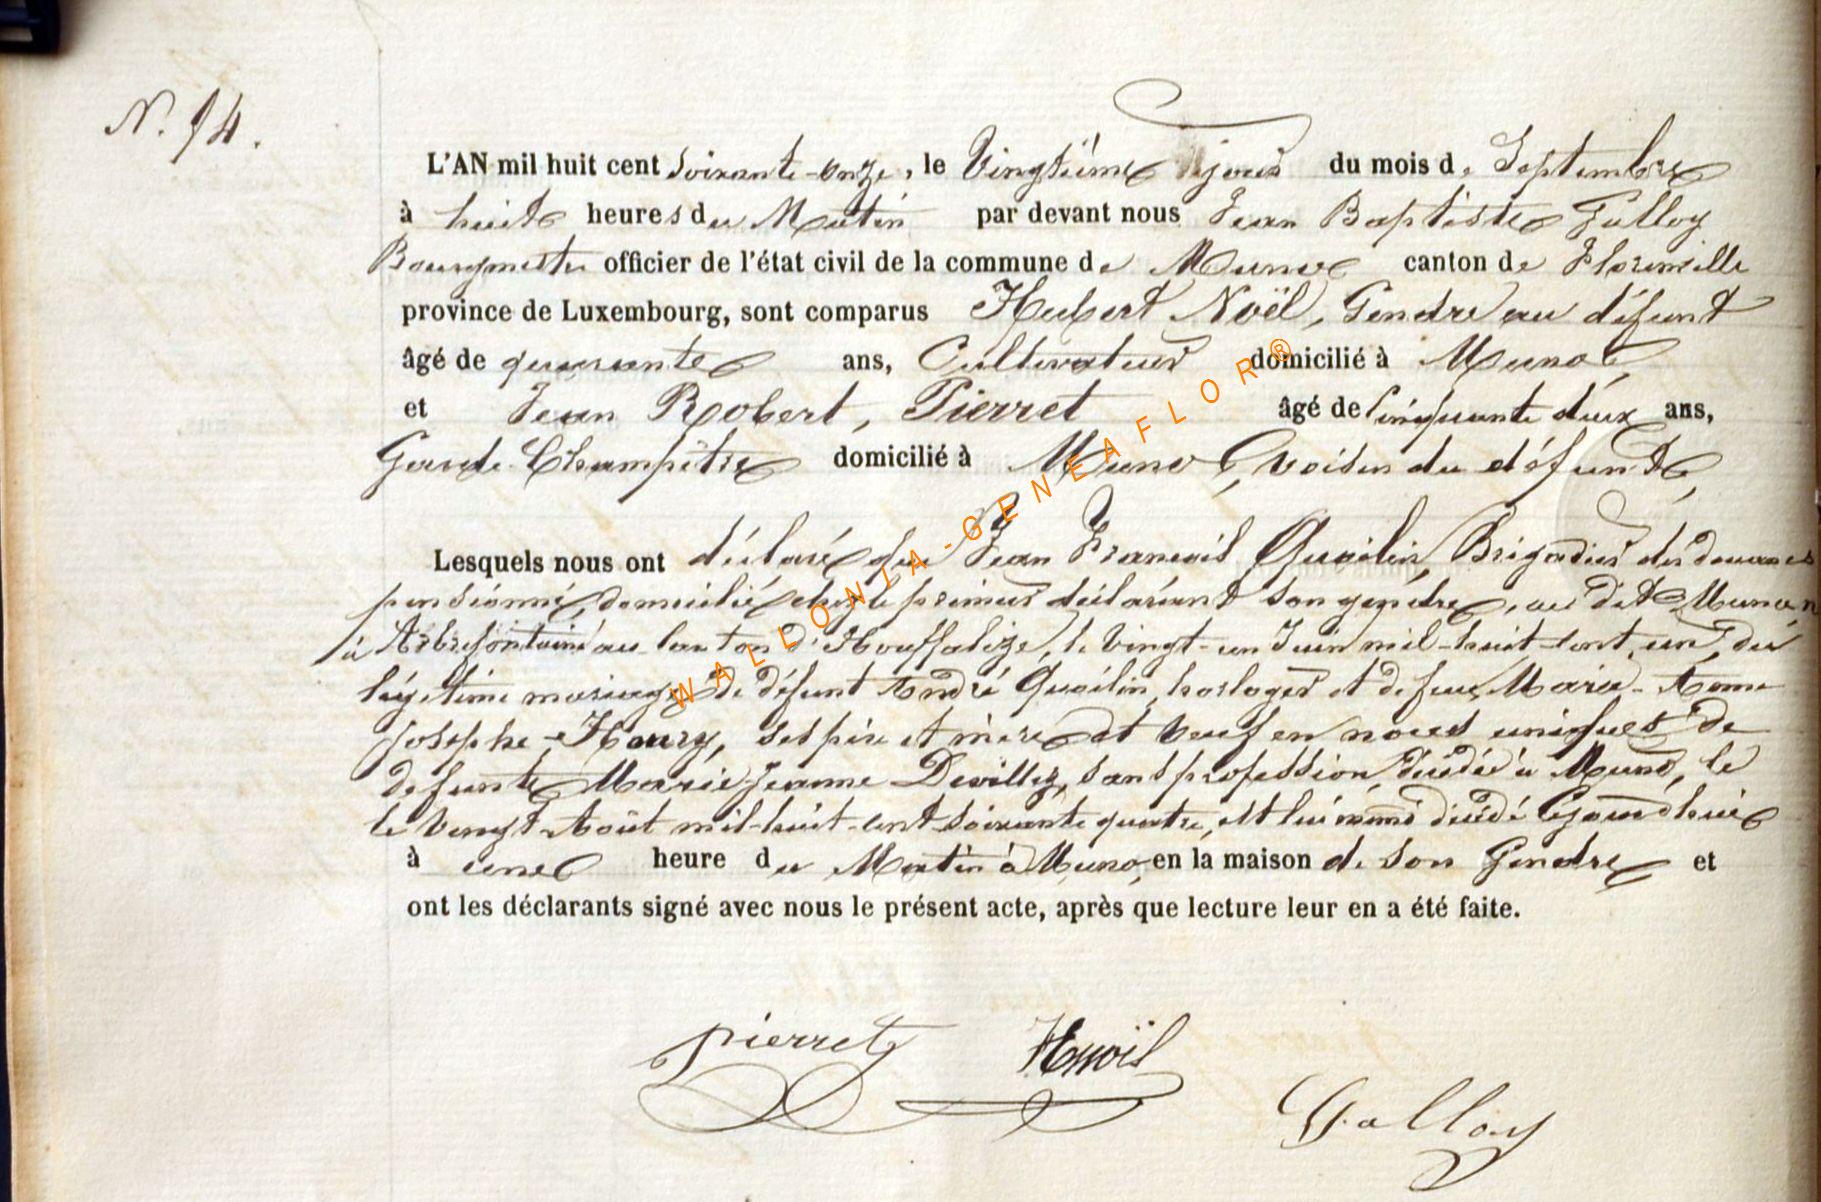 N. 14.
L'AN mil huit cent soixante-onze, le Vingtième jour du mois de Septembre
à huit heures du Matin par devant nous Jean Baptiste Galloy
Bourgmestre officier de l'état civil de la commune de Muno canton de Florenville
province de Luxembourg, sont comparus Hubert Noël, Gendre au défunt
âgé de quarante ans, Cultivateur domicilié à Muno
et Jean Robert, Pierret âgé de Cinquante deux ans,
Garde Champêtre domicilié à Muno, voisin du défunt,
Lesquels nous ont déclaré que Jean François Quoilin, Brigadier des douanes
pensionné, domicilié chez le premier déclarant son gendre, au dit Muno, né
à Arbrefontaine au canton d'Houffalize, le vingt-un Juin mil-huit-cent, un, du
légitime mariage de défunt André Quoilin, horloger et defue Marie-Anne
Josephe Henry, ses père et mère et veuf en noces uniques de
defunte Marie Jeanne Devillez, sans profession, décédée à Muno, le
le Vingt Août mil-huit-cent soixante quatre, est lui même décédé Ajourd'hui
à une heure du Matin à Muno, en la maison de son Gendre et
ont les déclarants signé avec nous le présent acte, après que lecture leur en a été faite.
pierret HNoël
Galloy
WALLONIA-GENEAFLOR®